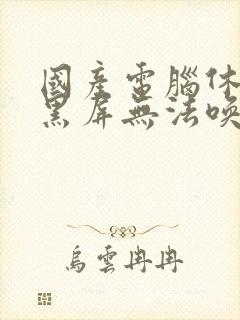 國產電腦休
黑屏無法喚
烏雲冉冉